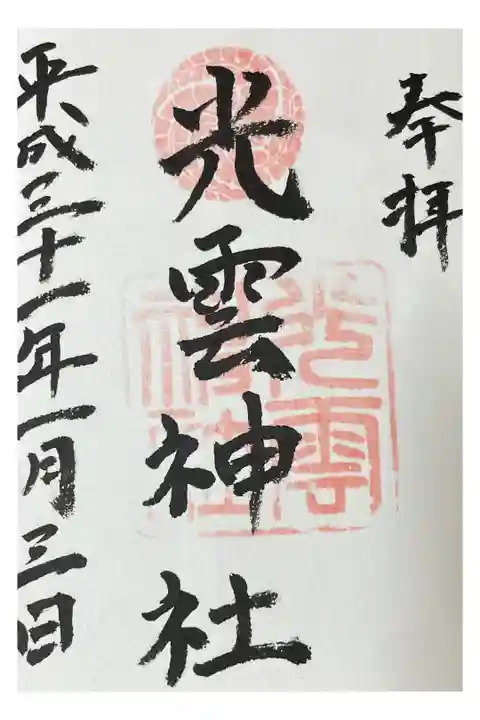 奉拝
光雲神社
平成三十一年一月三日
光雲
神社